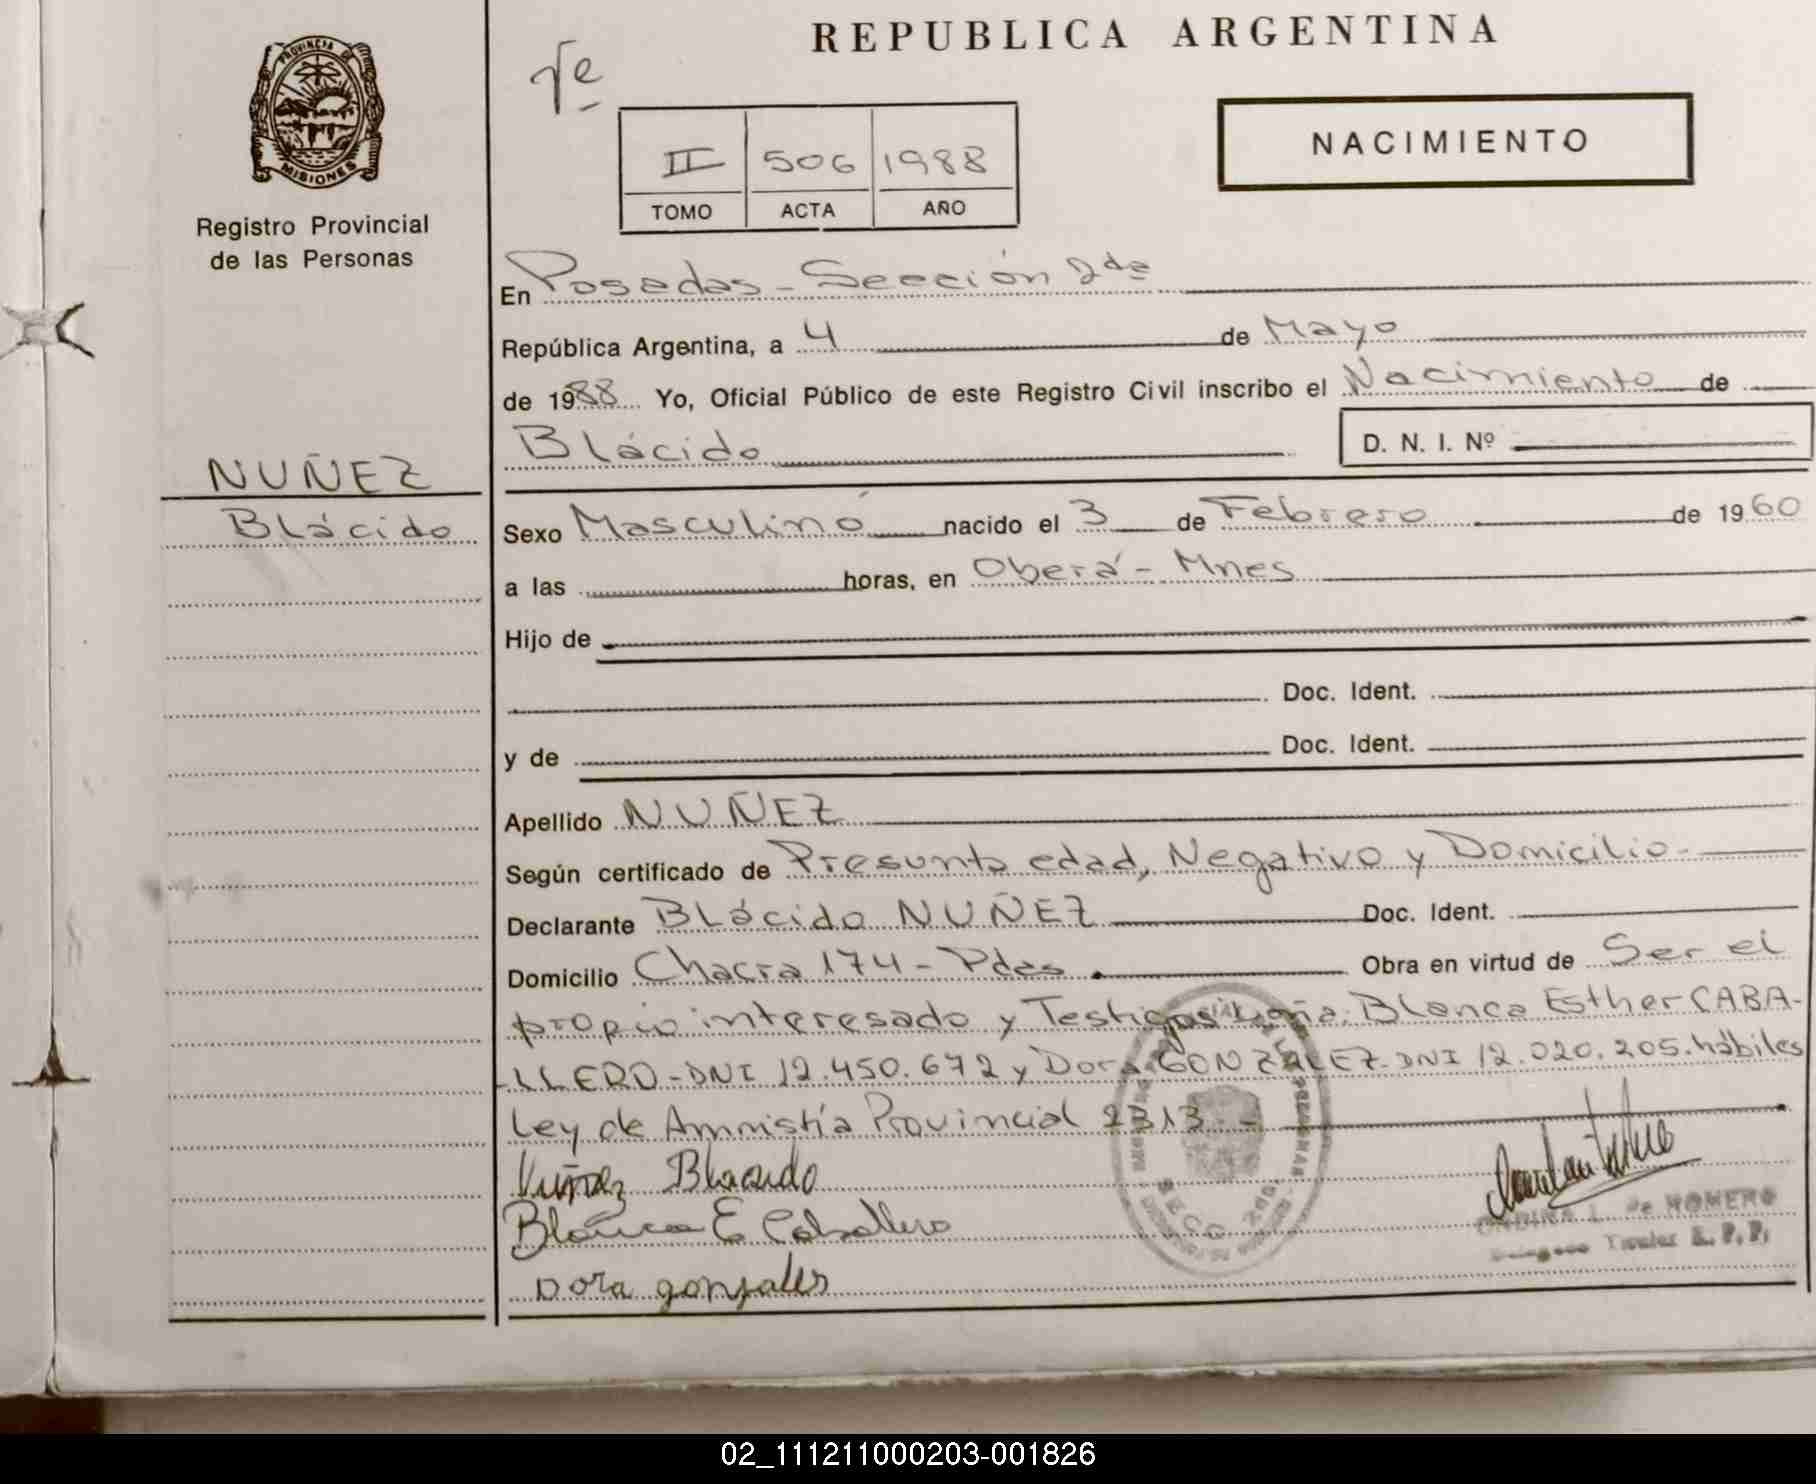 REPUBLICA ARGENTINA
PROVINCIA DE
MISIONES
Registro Provincial
de las Personas
NACIMIENTO
II 506 1988
TOMO ACTA AÑO
En Posadas - Sección 2da
República Argentina, a 4 de Mayo
de 1988 Yo, Oficial Público de este Registro Civil inscribo el Nacimiento de
Blácido D. N. I. Nº
NUÑEZ
Blácido
Sexo Masculino nacido el 3 de Febrero de 1960
a las horas, en Oberá - Mnes
Hijo de
Doc. Ident.
y de Doc. Ident.
Apellido NUÑEZ
Según certificado de Presunta edad, Negativo y Domicilio-
Declarante Blácido NUÑEZ Doc. Ident.
Domicilio Chacra 174 - Pdas Obra en virtud de Ser el
propio interesado y Testigos Doña: Blanca Esther CABA-
LLERO - DNI 12.450.672 y Dora GONZALEZ - DNI 12.020.205. hábiles
Ley de Amnistía Provincial 2313 -
Nuñez Blacido
Blanca E Caballero
Dora gonzales
SECC. 2da.
ONDINA L. de ROMERO
Titular R. P. P.
02_111211000203-001826